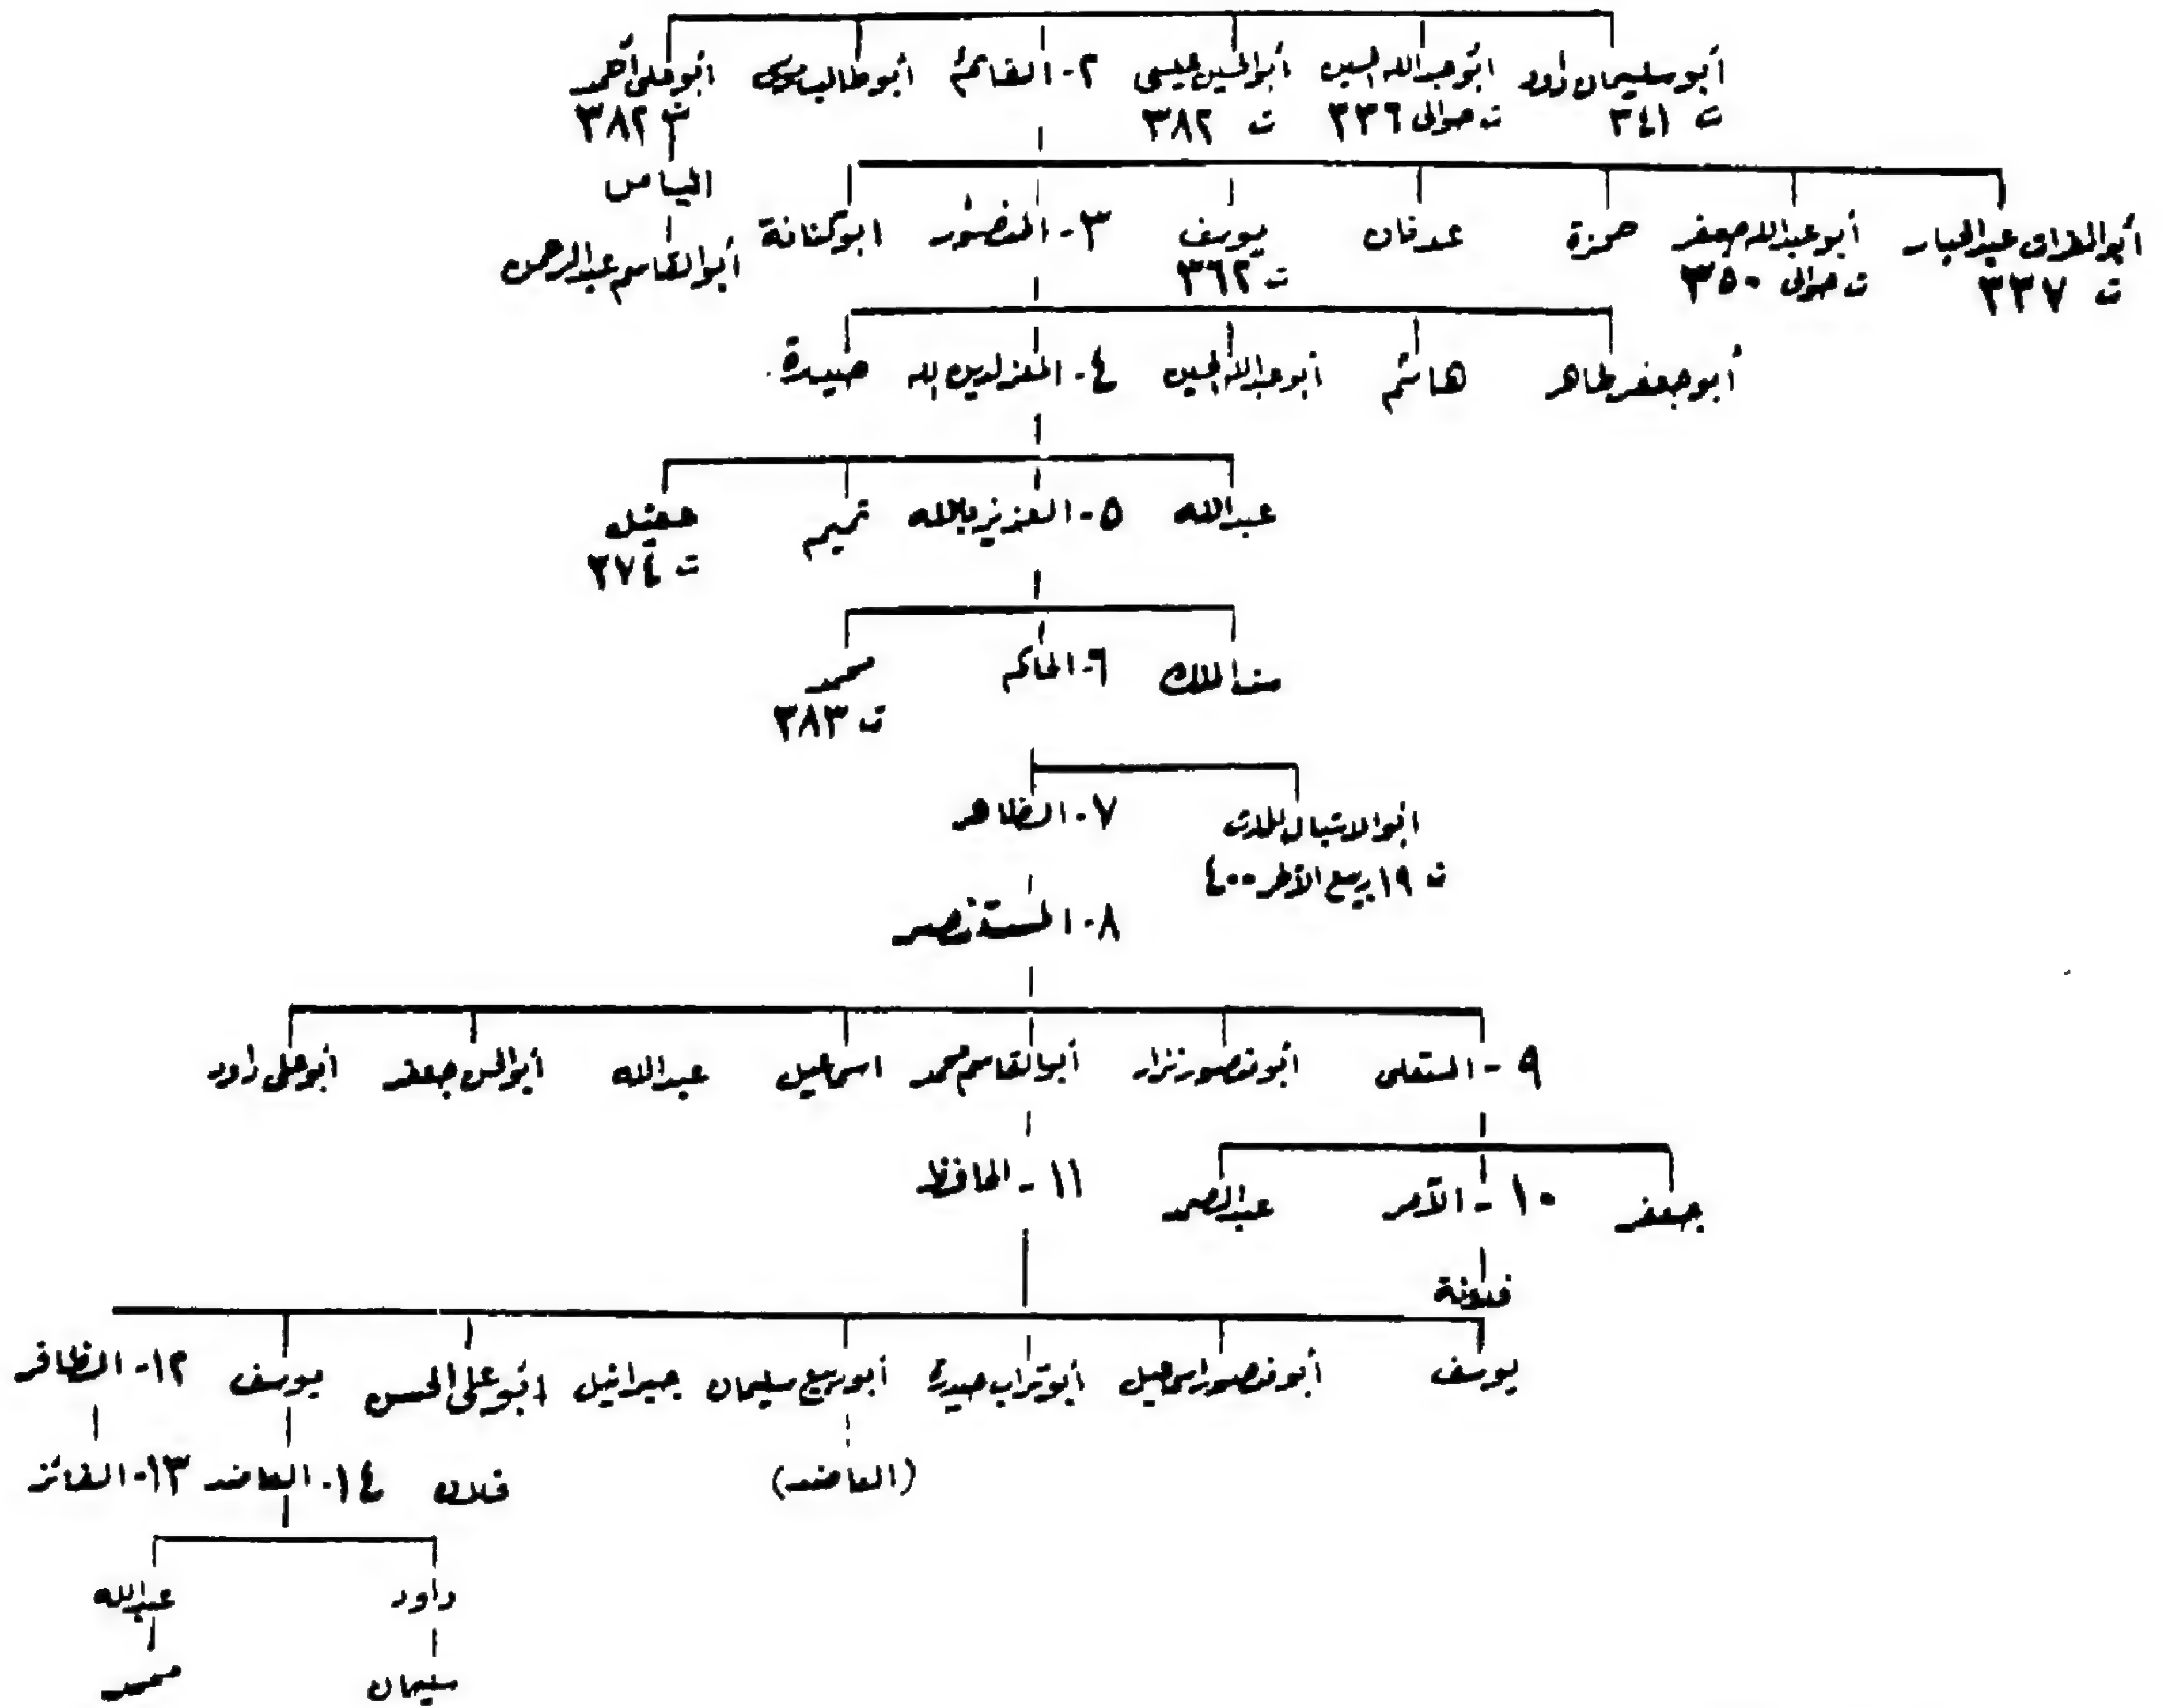 أبو سليمان داود أبو عبدالله الحسين أبو الحسين عيسى ٢- القائم أبو طالب موسى أبو على أحمد
ت ٣٤١ ت حوالى ٣٣٦ ت ٣٨٢ ت ٣٨٢
الياس
أبو القاسم عبدالرحمن
عبدالجبار أبو عبدالله جعفر حمزة عدنان يوسف ٣- المنصور ابو كنانة
ت ٣٣٧ ت حوالى ٣٥٠ ت ٣٦٢
أبو جعفر طاهر هاشم أبو عبدالله الحسين ٤- المعز لدين الله حيدرة
عبدالله ٥- العزيز بالله تميم عقيل
ت ٢٧٤
ست الملك ٦- الحاكم محمد
ت ٢٨٣
أبو الاشبال الحارث ٧- الظاهر
ت ١٩ ربيع الآخر ٤٠٠
٨- المستنصر
٩- المستعلى أبو منصور نزار أبو القاسم محمد اسمعيل عبدالله أبو الحسن جعفر أبو على داود
جعفر ١٠- الآمر عبدالصمد ١١- الحافظ
فلانة
يوسف أبو منصور اسمعيل أبو تراب حيدرة أبو ربيع سليمان جبرائيل أبو على الحسن يوسف ١٢- الظافر
(العاضد) فلان ١٤- العاضد ١٣- الفائز
داود عبدالله
سليمان محمد